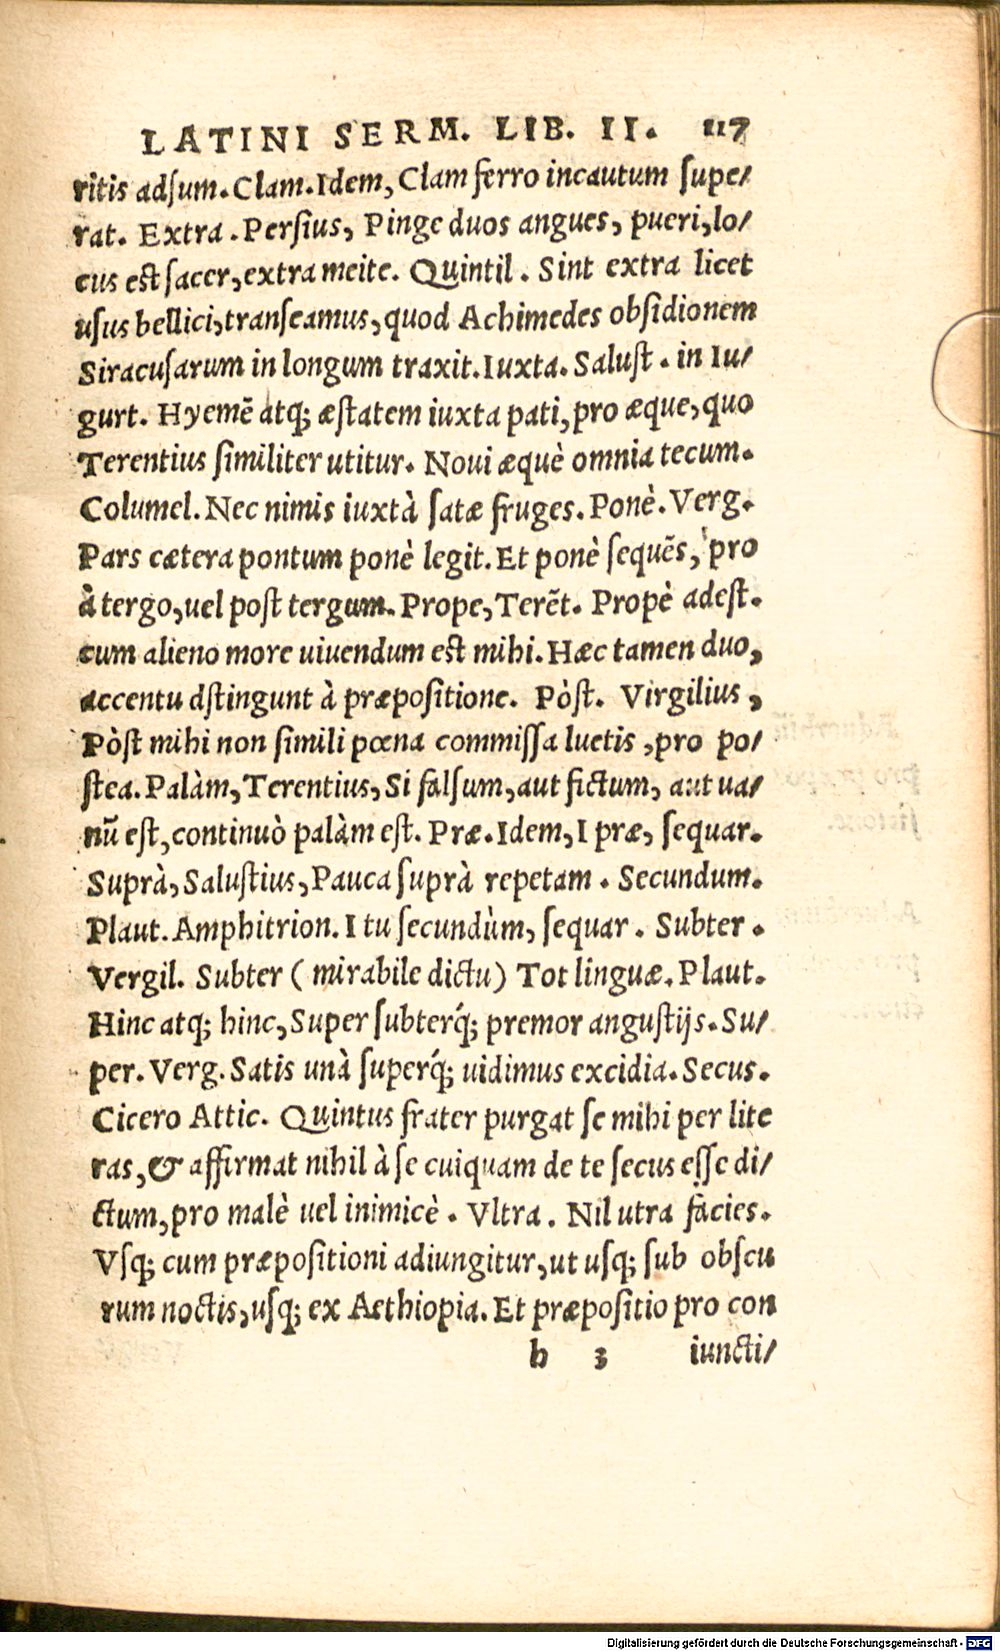 LATINI SERM. LIB. II. 117
ritis adsum. Clam. Idem, Clam ferro incautum supe/
rat. Extra. Persius, Pinge duos angues, pueri, lo/
cus est sacer, extra meite. Quintil. Sint extra licet
usus bellici, transeamus, quod Achimedes obsidionem
Siracusarum in longum traxit. Iuxta. Salust. in Iu/
gurt. Hyemē atq; æstatem iuxta pati, pro æque, quo
Terentius similiter utitur. Noui æquè omnia tecum.
Columel. Nec nimis iuxtà satæ fruges. Ponè. Verg.
Pars cætera pontum ponè legit. Et ponè sequēs, pro
à tergo, uel post tergum. Prope, Terēt. Propè adest.
cum alieno more uiuendum est mihi. Hæc tamen duo,
accentu dstingunt à præpositione. Pòst. Virgilius,
Pòst mihi non simili pœna commissa luetis, pro po/
stea. Palàm, Terentius, Si falsum, aut fictum, aut ua/
nū est, continuò palàm est. Præ. Idem, I præ, sequar.
Suprà, Salustius, Pauca suprà repetam. Secundum.
Plaut. Amphitrion. I tu secundùm, sequar. Subter.
Vergil. Subter (mirabile dictu) Tot linguæ. Plaut.
Hinc atq; hinc, Super subterq́; premor angustijs. Su/
per. Verg. Satis unà superq́; uidimus excidia. Secus.
Cicero Attic. Quintus frater purgat se mihi per lite
ras, & affirmat nihil à se cuiquam de te secus esse di/
ctum, pro malè uel inimicè. Vltra. Nil utra facies.
Vsq; cum præpositioni adiungitur, ut usq; sub obscu
rum noctis, usq; ex Aethiopia. Et præpositio pro con
h 3 iuncti/
Digitalisierung gefördert durch die Deutsche Forschungsgemeinschaft - DFG